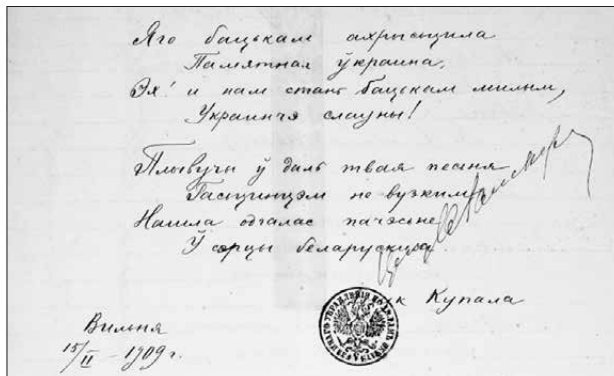 Яго бацькам ахрысьціла
Памятная ўкраина,
Эх! и нам стань бацькам милым,
Украинчэ слаўны!
Плывучы ў даль твая песня
Гасьцинцэм не вузкимъ
Нашла одгалас пачэсны
Ў сэрцы беларускім
к Купала
Вильня
15/II – 1909 г.